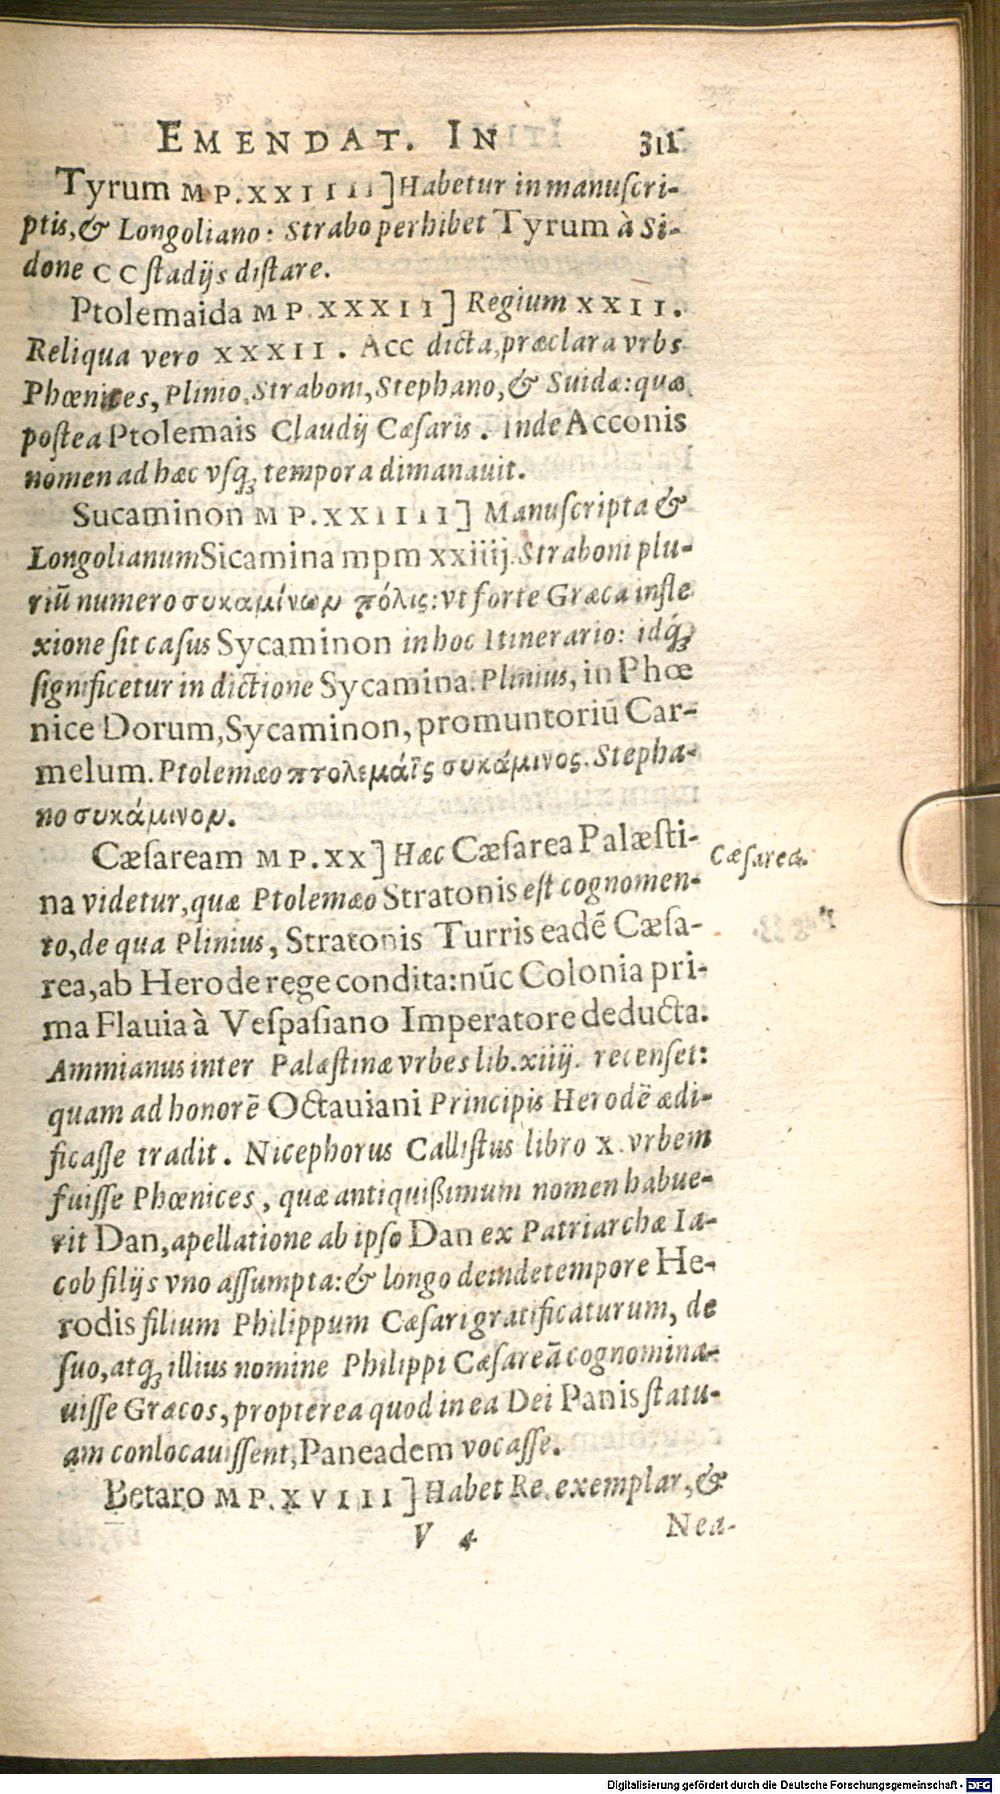 EMENDAT. IN 311
Tyrum MP.XXIIII] Habetur in manuscri-
ptis, & Longoliano: Strabo perhibet Tyrum à Si-
done CC stadijs distare.
Ptolemaida MP.XXXII] Regium XXII.
Reliqua vero XXXII. Acc dicta, præclara vrbs
Phœnices, Plinio, Straboni, Stephano, & Suidæ: quæ
postea Ptolemais Claudij Cæsaris. Inde Acconis
nomen ad hæc vsq́; tempora dimanauit.
Sucaminon MP.XXIIII] Manuscripta &
Longolianum Sicamina mpm xxiiij. Straboni plu-
riũ numero συκαμίνων πόλις: vt forte Græca infle
xione sit casus Sycaminon in hoc Itinerario: idq́;
significetur in dictione Sycamina. Plinius, in Phœ
nice Dorum, Sycaminon, promuntoriũ Car-
melum. Ptolemæo πτολεμάϊς συκάμινος. Stepha-
no συκάμινον.
Cæsaream MP.XX] Hæc Cæsarea Palæsti-
Cæsarea.
na videtur, quæ Ptolemæo Stratonis est cognomen-
to, de qua Plinius, Stratonis Turris eadẽ Cæsa-
rea, ab Herode rege condita: nũc Colonia pri-
ma Flauia à Vespasiano Imperatore deducta.
Ammianus inter Palæstinæ vrbes lib.xiiij. recenset:
quam ad honorẽ Octauiani Principis Herodẽ ædi-
ficasse tradit. Nicephorus Callistus libro X. vrbem
fuisse Phœnices, quæ antiquißimum nomen habue-
rit Dan, apellatione ab ipso Dan ex Patriarchæ Ia-
cob filijs vno assumpta: & longo deinde tempore He-
rodis filium Philippum Cæsari gratificaturum, de
suo, atq; illius nomine Philippi Cæsareã cognomina-
uisse Græcos, propterea quod in ea Dei Panis statu-
am conlocauissent, Paneadem vocasse.
Betaro MP.XVIII] Habet Re. exemplar, &
V 4 Nea-
Digitalisierung gefördert durch die Deutsche Forschungsgemeinschaft - DFG